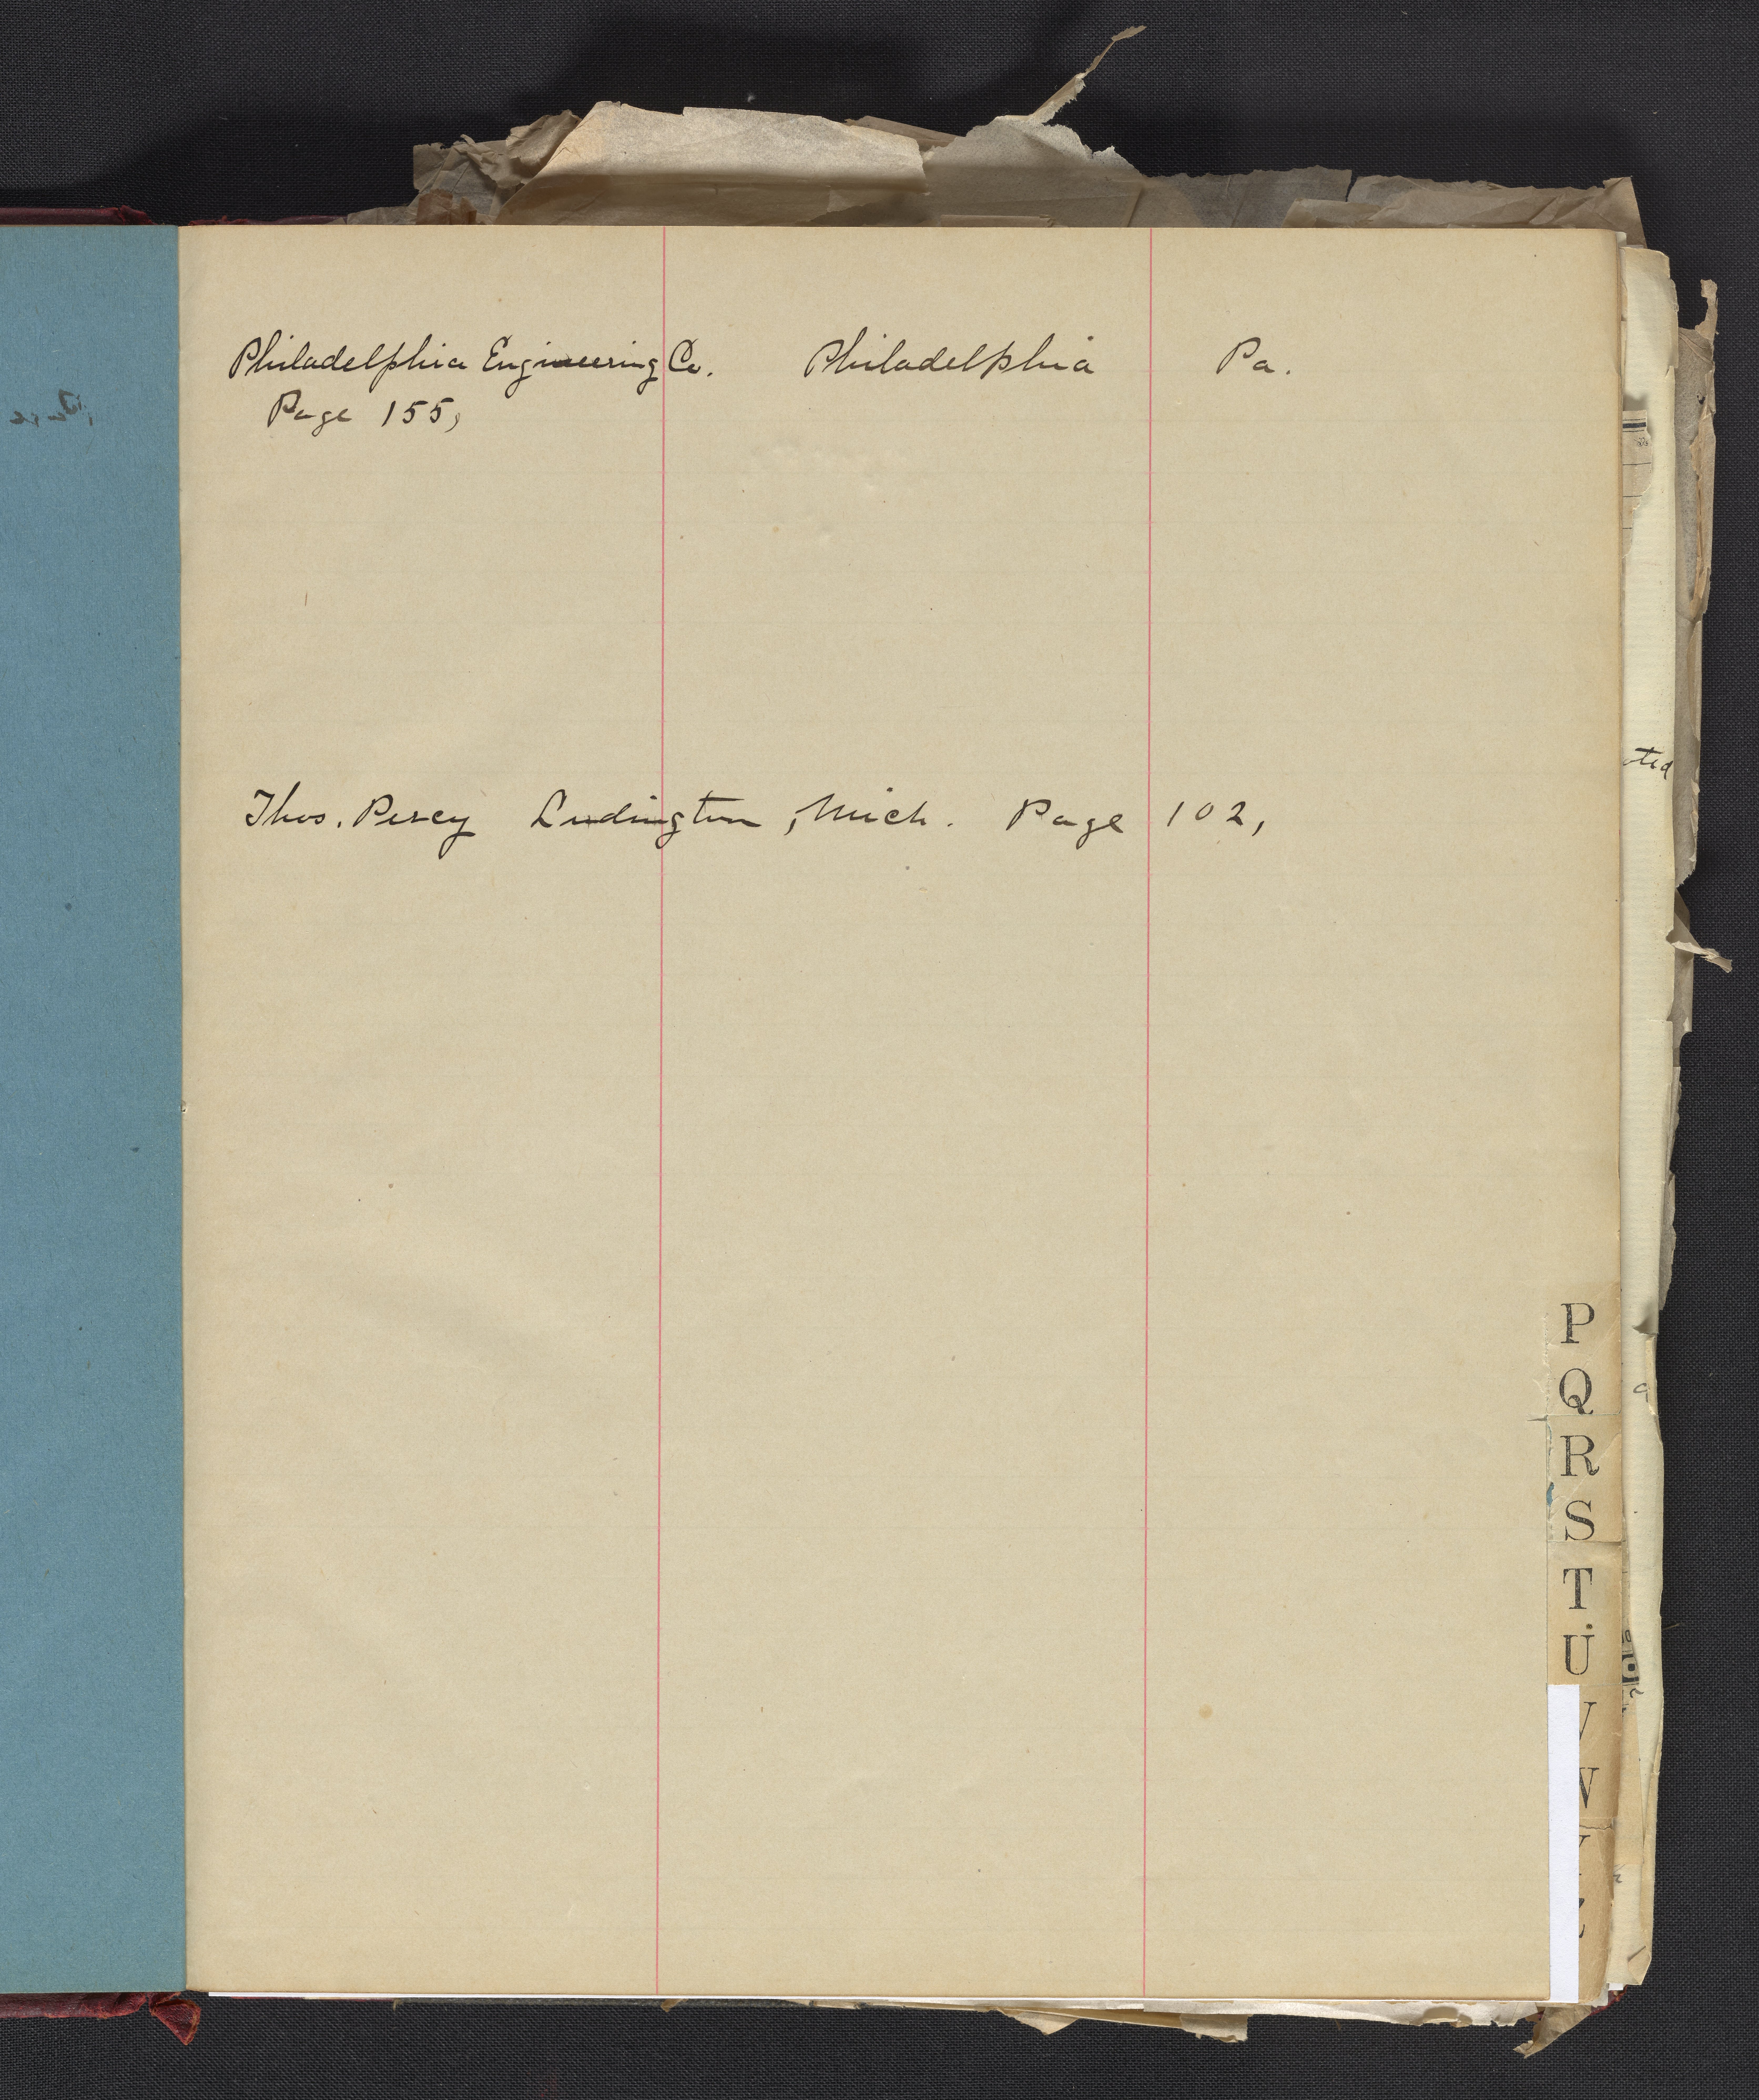 Philadelphia Engineering Co. Philadelphia Pa.
Page 155,
Thos. Percy Ludington, Mich. Page 102,
P
Q
R
S
T
U
V
W